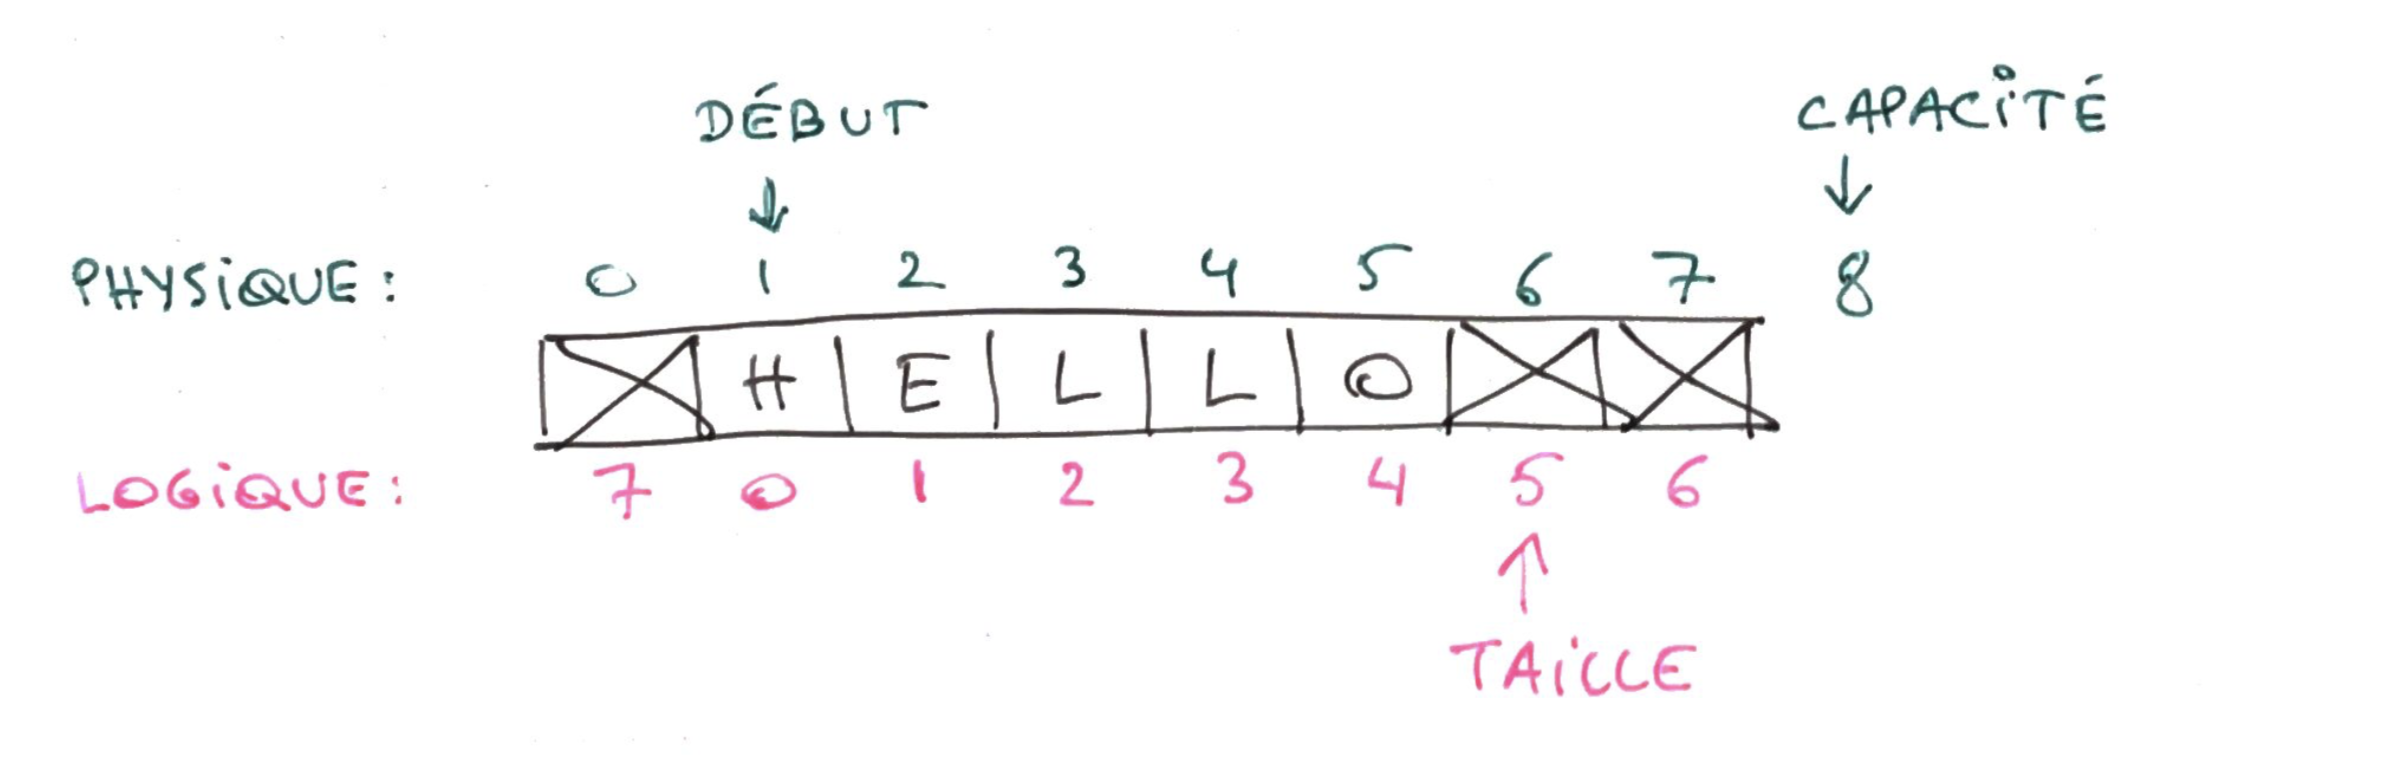 DÉBUT CAPACITÉ
PHYSIQUE: 0 1 2 3 4 5 6 7 8
H E L L O
LOGIQUE: 7 0 1 2 3 4 5 6
TAILLE